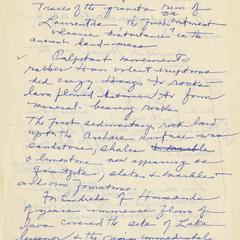 Traces of the granite rim of
Laurentia - the first continent
volcanic disturbances in the
ancient land-mass
Palpitant movements
rubber than violent eruptions
did carry things to rocks
lava flowed
mineral-bearing rocks
The first sedimentary rock laid
upon the Archean surface was
sandstone, shales
& limestone now appearing as
quartzite, slates & marbles
and iron formations.
For hundreds of thousands
of years immense flows of
lava covered the site of Lake
Superior & the region immediately